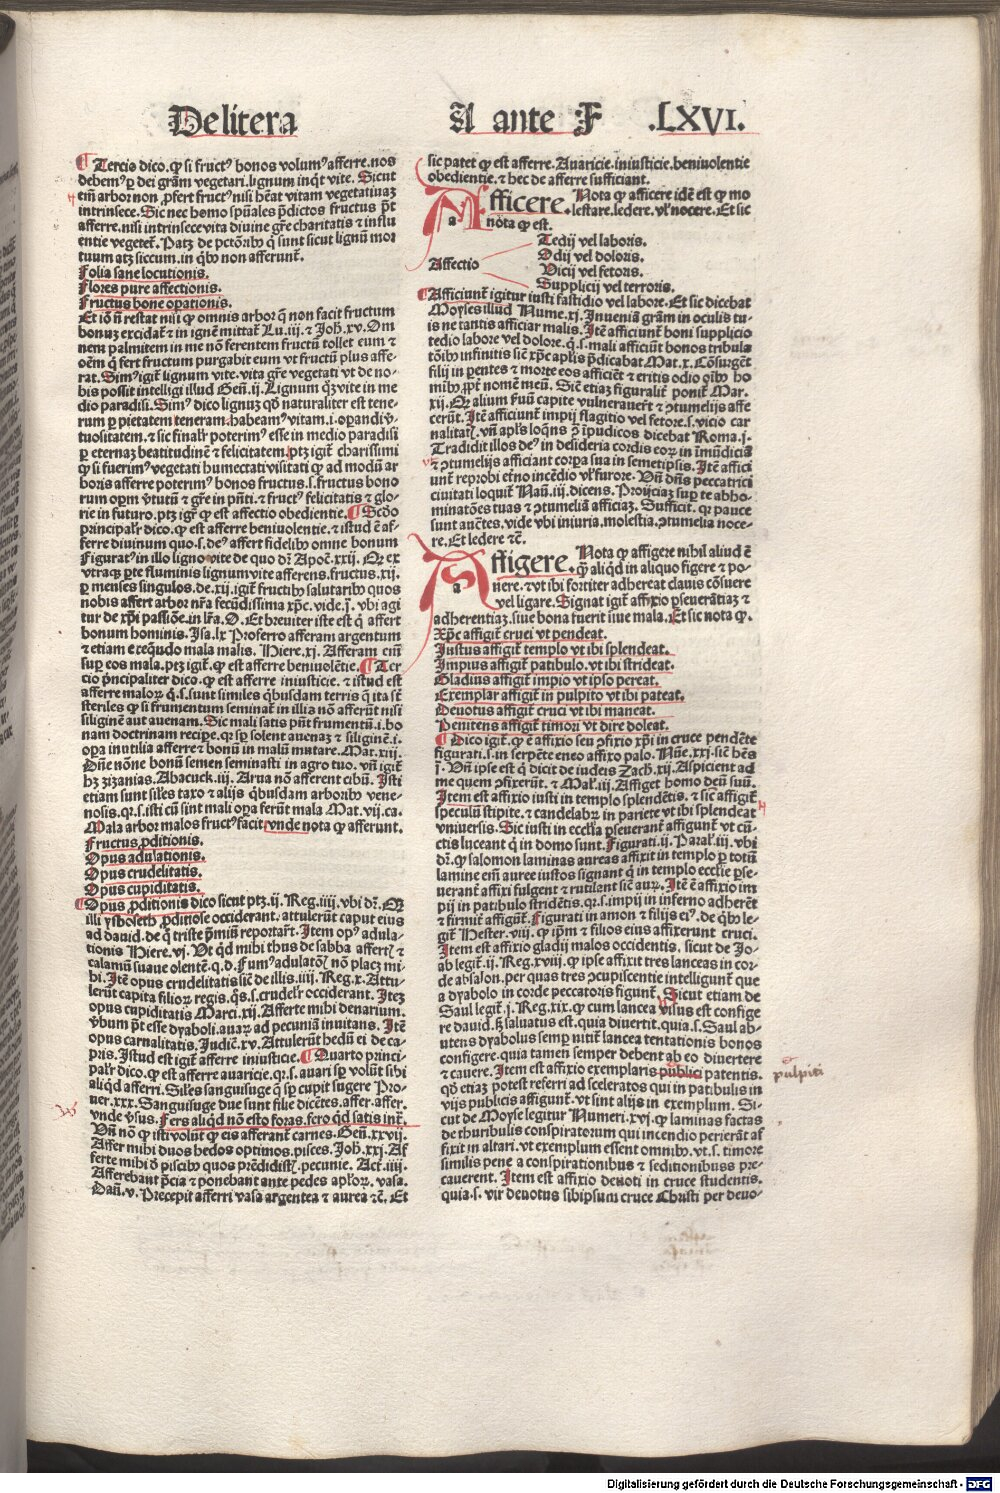 De litera A ante F .LXVI.
¶ Tercio dico. ꝙ si fructꝰ bonos volumꝰ afferre. nos
debemꝰ ꝑ dei grãm vegetari. lignum inq̃t vite. Sicut
eĩm arbor non ꝓfert fructꝰ nisi hẽat vitam vegetatiuaꝫ
intrinsece. Sic nec homo spũales p̃dictos fructus p̃t
afferre. nisi intrinsece vita diuine gr̃e charitatis ⁊ influ
entie vegetet̃. Patꝫ de pctõribꝰ q̃ sunt sicut lignũ mor
tuum atꝫ siccum. in q̃bꝰ non afferunt̃.
Folia sane locutionis.
Flores pure affectionis.
Fructus bone oꝑationis.
Et iõ ñ restat nisi ꝙ omnis arbor q̃ non facit fructum
bonuꝫ excidat̃ ⁊ in ignẽ mittat̃. Lu. iij. ⁊ Joh̃. xv. Om
nem palmitem in me nõ ferentem fructũ tollet eum ⁊
oẽm q̃ fert fructum purgabit eum vt fructũ plus affe-
rat. Simꝰ igit̃ lignum vite. vita gr̃e vegetati vt de no-
bis possit intelligi illud Geñ. ij. Lignum q̃ꝫ vite in me
dio paradisi. Simꝰ dico lignuꝫ qđ naturaliter est tene-
rum ꝑ pietatem teneram. habeamꝰ vitam. i. oꝑandi ṽ
tuositatem. ⁊ sic finalr̃ poterimꝰ esse in medio paradisi
ꝑ eternaꝫ beatitudinẽ ⁊ felicitatem. ptꝫ igit̃ charissimi
ꝙ si fuerimꝰ vegetati humectati visitati ꝙ ad modũ ar
boris afferre poterimꝰ bonos fructus. s. fructus bono
rum oꝑm ṽtutũ ⁊ gr̃e in pñti. ⁊ fructꝰ felicitatis ⁊ glo-
rie in futuro. ptꝫ igit̃ ꝙ est affectio obedientie. ¶ Scđo
principalr̃ dico. ꝙ est afferre beniuolentie. ⁊ istud ẽ af-
ferre diuinum quo. s. deꝰ affert fidelibꝰ omne bonum
Figuratꝰ in illo ligno vite de quo dr̃ Apoc̃. xxij. Qꝛ ex
vtraqꝫ ꝑte fluminis lignum vite afferens. fructus. xij.
ꝑ menses singulos. de. xij. igit̃ fructibꝰ salutaribꝰ quos
nobis affert arbor nr̃a fecũdissima xp̃c. vide. j. vbi agi
tur de xp̃i passiõe. in lr̃a. O. Et breuiter iste est q̃ affert
bonum hominis. Isa. lx Pro ferro afferam argentum
⁊ etiam e cõqũdo mala malis. Hiere. xj. Afferam eiñ
suꝑ eos mala. ptꝫ igit̃. ꝙ est afferre beniuolẽtie. ¶ Ter
cio p̃ncipaliter dico. ꝙ est afferre iniusticie. ⁊ istud est
afferre maloꝝ q̃. s. sunt similes q̃busdam terris q̃ ita st̃
steriles ꝙ si frumentum seminat̃ in illis nõ afferũt nisi
siliginẽ aut auenam. Sic mali satis pñt frumentũ. i. bo
nam doctrinam reciꝑe. qꝛ sꝑ solent auenaꝫ ⁊ siliginẽ. i.
oꝑa inutilia afferre ⁊ bonũ in malũ mutare. Mat. xiij.
Dñe nõne bonũ semen seminasti in agro tuo. vñ igit̃
hꝫ zizanias. Abacuck. iij. Arua nõ afferent cibũ. Isti
etiam sunt sil̃es taxo ⁊ alijs q̃busdam arboribꝰ vene-
nosis. qꝛ. s. isti cũ sint mali oꝑa ferũt mala Mat. vij. ca.
Mala arbor malos fructꝰ facit vnde nota ꝙ afferunt.
Fructus ꝓditionis.
Opus adulationis.
Opus crudelitatis.
Opus cupiditatis.
¶ Opus ꝓditionis dico sicut ptꝫ. ij. Reg. iiij. vbi dr̃. Qꝛ
illi ysboseth ꝓditiose occiderant. attulerũt caput eius
ad dauid. de q̃ triste p̃miũ reportar̃t. Item opꝰ adula-
tionis Hiere. vj. Vt qđ mihi thus de sabba affertꝭ ⁊
calamũ suaue olentẽ. q. d. Fumꝰ adulatõꝭ nõ placꝫ mi-
hi. Itẽ opus crudelitatis sic̃ de illis. iiij. Reg. x. Attu-
lerũt capita filioꝝ regis. q̃s. s. crudelr̃ occiderant. Iteꝫ
opus cupiditatis Marci. xij. Afferte mihi denarium.
Ṽbum p̃t esse dyaboli. auaꝝ ad pecuniã inuitans. Itẽ
opus carnalitatis. Judic̃. xv. Attulerũt hedũ ei de ca-
pris. Istud est igit̃ afferre iniusticie. ¶ Quarto princi-
palr̃ dico. ꝙ est afferre auaricie. qꝛ. s. auari sꝑ volũt sibi
aliq̃d afferri. Sil̃es sanguisuge q̃ sꝑ cupit sugere Pro-
uer. xxx. Sanguisuge due sunt filie dicẽtes. affer. affer.
vnde ṽsus. Fers aliq̃d nõ esto foras. fero q̃d satis int̃.
Vñ nõ ꝙ isti volũt ꝙ eis afferant̃ carnes. Geñ. xxvij.
Affer mihi duos hedos optimos. pisces. Joh̃. xxj. Af
ferte mihi đ piscibꝰ quos prẽdidistꝭ. pecunie. Act̃. iiij.
Afferebant p̃cia ⁊ ponebant ante pedes apl̃oꝝ. vasa.
Dañ. v. Precepit afferri vasa argentea ⁊ aurea ⁊c̃. Et
sic patet ꝙ est afferre. Auaricie. iniusticie. beniuolentie
obedientie. ⁊ hec de afferre sufficiant.
Afficere. Nota ꝙ afficere idẽ est ꝙ mo
lestare. ledere. vl̃ nocere. Et sic
a nõta ꝙ est.
Affectio
Tedij vel laboris.
Odij vel doloris.
Vicij vel fetoris.
Supplicij vel terroris.
¶ Afficiunt̃ igitur iusti fastidio vel labore. Et sic dicebat
Moyses illud Nume. xj. Inueniã grãm in oculis tu-
is ne tantis afficiar malis. Itẽ afficiunt̃ boni supplicio
tedio labore vel dolore. q̃. s. mali afficiũt bonos tribula
tõibꝰ infinitis sic̃ xp̃c apl̃is p̃dicabat Mat. x. Cõsurgẽt
filij in parentes ⁊ morte eos afficiẽt ⁊ eritis odio oĩbꝰ ho
mĩbꝰ. ꝓpt̃ nomẽ meũ. Sic̃ etiaꝫ figuralit̃ ponit̃ Mar.
xij. Qꝛ alium ẽuũ capite vulnerauert̃ ⁊ ꝯtumelijs affe
cerũt. Itẽ afficiunt̃ impij flagitio vel fetore. s. vicio car
nalitatꝭ. vñ apl̃s loq̃ns ꝓ ĩpudicos dicebat Roma. j.
Tradidit illos deꝰ in desideria cordis eoꝝ in ĩmũdiciã
⁊ ꝯtumelijs afficiant corꝑa sua in semetipsis. Itẽ affici
unt̃ reprobi et̃no incẽdio vl̃ furore. Vñ dñs peccatrici
ciuitati loquit̃ Naũ. iij. dicens. Proijciaꝫ suꝑ te abho-
minatões tuas ⁊ ꝯtumeliã afficiaꝫ. Sufficit. qꝛ pauce
sunt auc̃tes. vide vbi iniuria. molestia. ꝯtumelia noce-
re. Et ledere ⁊c̃.
Affigere. Nota ꝙ affigere nihil aliud ẽ
ꝙ̃ aliq̃d in aliquo figere ⁊ po-
a nere. ⁊ vt ibi fortiter adhereat clauis cõsuere
vel ligare. Signat igit̃ affixio ꝑseuerãtiaꝫ ⁊
adherentiaꝫ. siue bona fuerit siue mala. Et sic nota ꝙ.
Xp̃c affigit̃ cruci vt pendeat.
Iustus affigit̃ templo vt ibi splendeat.
Impius affigit̃ patibulo. vt ibi strideat.
Gladius affigit̃ impio vt ipso pereat.
Exemplar affigit̃ in pulpito vt ibi pateat.
Deuotus affigit̃ cruci vt ibi maneat.
Penitens affigit̃ timori vt dire doleat.
¶ Dico igit̃. ꝙ ẽ affixio seu ꝯfixio xp̃i in cruce pendẽte
figurati. s. in serpẽte eneo affixo palo. Nũe. xxj. sic̃ hẽs
j. Vñ ipse est q̃ dicit de iudeis Zach̃. xij. Aspicient ad
me quem ꝯfixerũt. ⁊ Mal̃. iij. Affiget homo deũ suũ.
Item est affixio iusti in templo splendẽtis. ⁊ sic̃ affigit̃
speculũ stipite. ⁊ candelabꝝ in pariete vt ibi splendeat
vniuersis. Sic iusti in eccl̃ia ꝑseuerant affigunt̃ vt cũ-
ctis luceant q̃ in domo sunt. Figurati. ij. Paral̃. iij. vbi
dr̃. ꝙ salomon laminas aureas affixit in templo ꝑ totũ
lamine em̃ auree iustos signant q̃ in templo eccl̃ie ꝑse-
uerant affixi fulgent ⁊ rutilant sic̃ auꝝ. Itẽ ẽ affixio im
pij in patibulo stridẽtis. qꝛ. s. impij in inferno adherẽt
⁊ firmit̃ affigũt̃. Figurati in amon ⁊ filijs eiꝰ. de q̃bꝰ le-
git̃ Hester. viij. ꝙ ip̃m ⁊ filios eius affixerunt cruci.
Item est affixio gladij malos occidentis. sicut de Jo-
ab legit̃. ij. Reg. xviij. ꝙ ipse affixit tres lanceas in cor-
de absalon. per quas tres ꝯcupiscentie intelligunt̃ que
a dyabolo in corde peccatoris figunt̃. Sicut etiam de
Saul legit̃. j. Reg. xix. ꝙ cum lancea visus est confige
re dauid. sꝫ saluatus est. quia diuertit. quia. s. Saul ab-
utens dyabolus semꝑ nitit̃ lancea tentationis bonos
configere. quia tamen semper debent ab eo diuertere
⁊ cauere. Item est affixio exemplaris publici patentis.
qđ etiaꝫ potest referri ad sceleratos qui in patibulis in
vijs publicis affigunt̃. vt sint alijs in exemplum. Si-
cut de Moyse legitur Numeri. xvj. ꝙ laminas factas
de thuribulis conspiratorum qui incendio perierãt af
fixit in altari. vt exemplum essent omnibꝰ. vt. s. timore
similis pene a conspirationibus ⁊ seditionibuss pre-
cauerent. Item est affixio deuoti in cruce studentis.
quia. s. vir deuotus sibipsum cruce Christi per deuo-
pulpiti
Digitalisierung gefördert durch die Deutsche Forschungsgemeinschaft - DFG